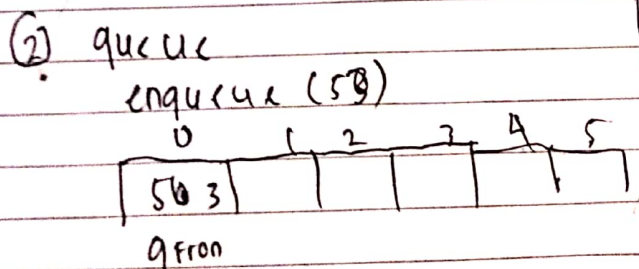 ② queue
enqueue (53)
0 1 2 3 4 5
53
qfron